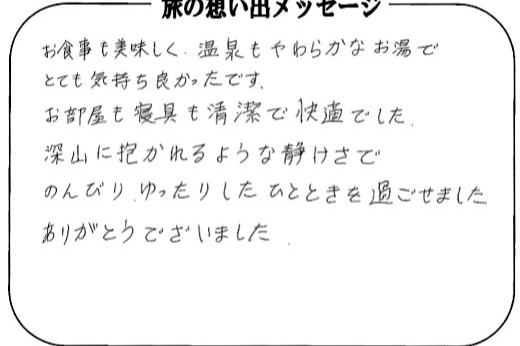 旅の想い出メッセージ
お食事も美味しく、温泉もやわらかなお湯で
とても気持ち良かったです。
お部屋も寝具も清潔で快適でした。
深山に抱かれるような静けさで
のんびり、ゆったりしたひとときを過ごせました
ありがとうございました。